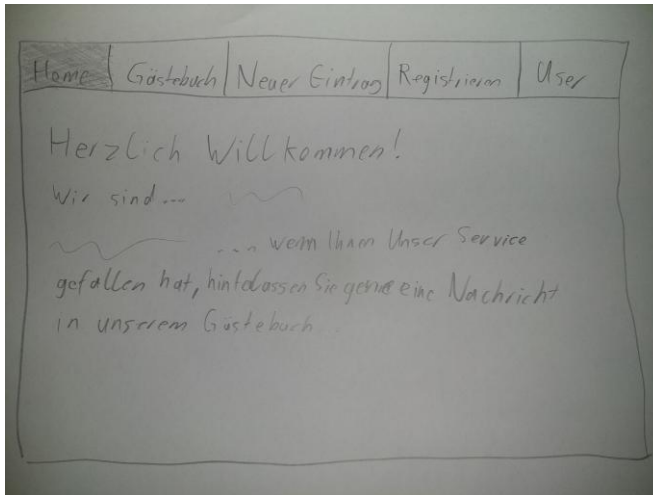 Home Gästebuch Neuer Eintrag Registrieren User
Herzlich Willkommen!
Wir sind...
... wenn Ihnen Unser Service
gefallen hat, hinterlassen Sie gerne eine Nachricht
in unserem Gästebuch...